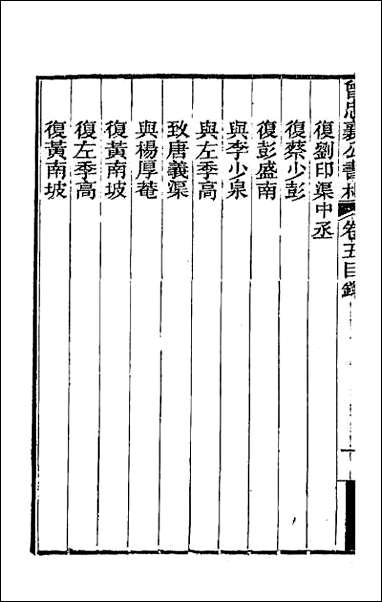 曾忠襄公書札 卷五目錄
復劉印渠中丞
復蔡少彭
復彭盛南
與李少泉
與左季高
致唐義渠
與楊厚菴
復黃南坡
復左季高
復黃南坡